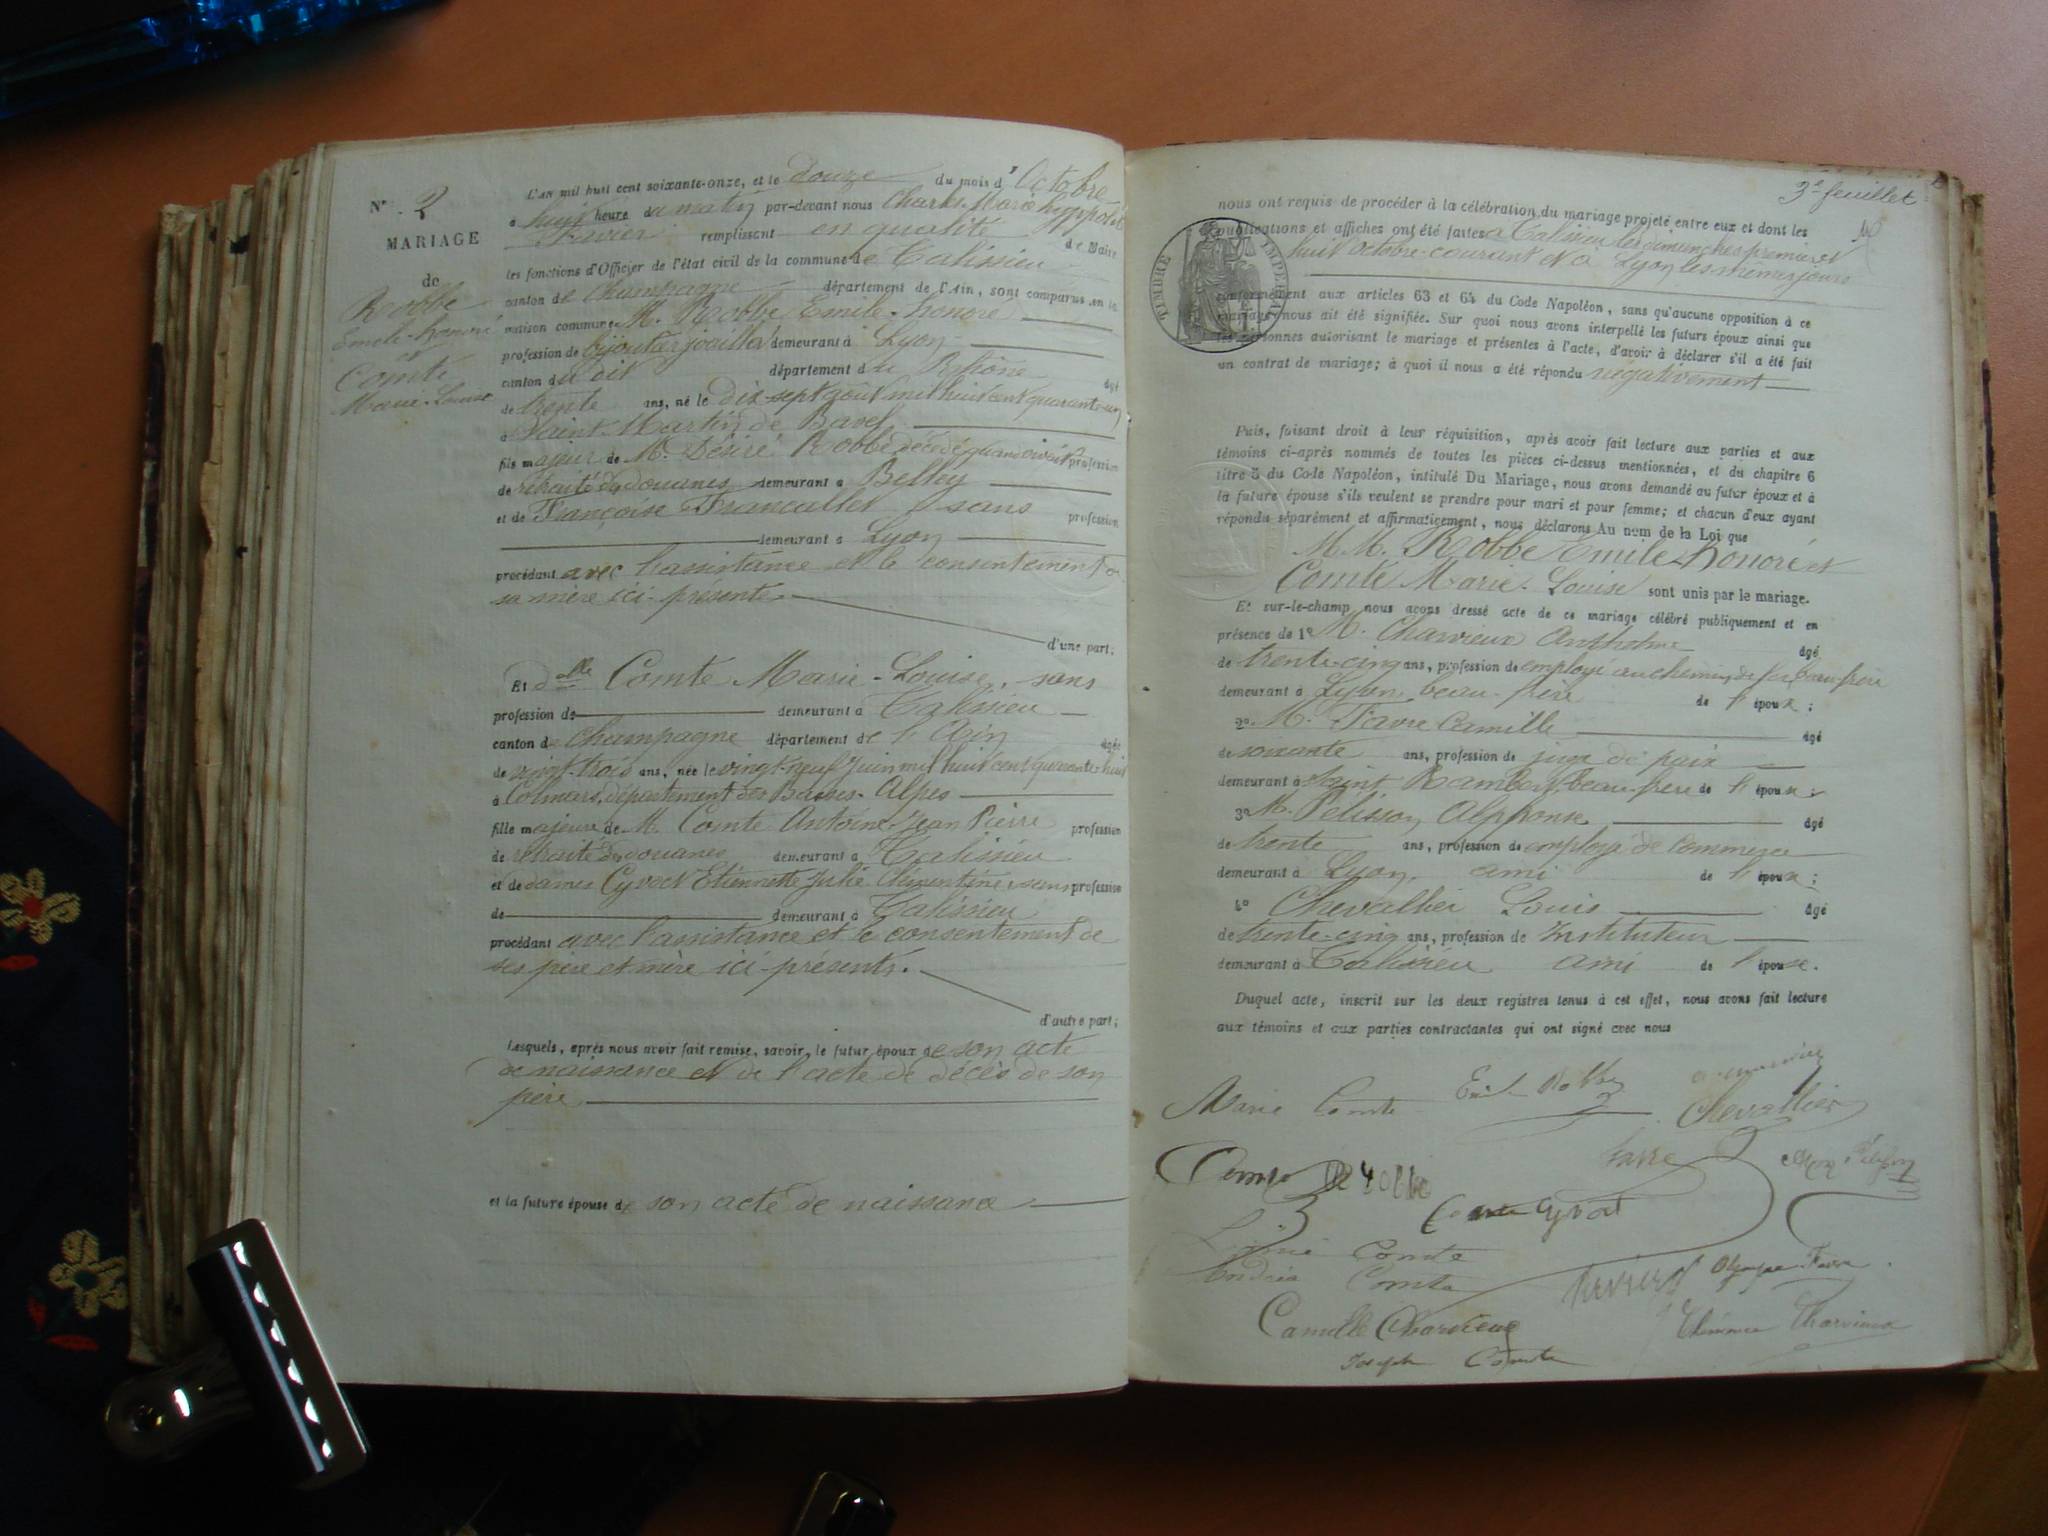 N° 2
MARIAGE
de
Robbe
Emile-honoré
et
Comte
Marie-Louise
L'an mil huit cent soixante-onze, et le douze du mois d'Octobre
à huit heure du matin par-devant nous Charles Marie hyppolite
remplissant en qualité de Maire
les fonctions d'Officier de l'état civil de la commune de Talissieu
canton de Champagne département de l'Ain, sont comparus en la
maison commune M. Robbe Emile-honoré
profession de bijoutier joaillier demeurant à Lyon
canton du dit département du Rhône âgé
de trente ans, né le dix-sept août mil huit cent quarante-un
à Saint Martin de Bavel
fils majeur de M. Désiré Robbe décédé quand vivait profession
de retraité des douanes demeurant à Belley
et de Françoise Francallet sans profession
demeurant à Lyon
procédant avec l'assistance et le consentement de
sa mère ici-présente
d'une part;
Et dlle Comte Marie-Louise, sans
profession de demeurant à Talissieu
canton de Champagne département de l'Ain âgée
de vingt-trois ans, née le vingt-neuf juin mil huit cent quarante-huit
à Colmars, département des Basses-Alpes
fille majeure de M. Comte Antoine-Jean Pierre profession
de retraité des douanes demeurant à Talissieu
et de dame Cyvoct Etiennette Julie Clémentine, sans profession
de demeurant à Talissieu
procédant avec l'assistance et le consentement de
ses père et mère ici-présents.
d'autre part;
Lesquels, après nous avoir fait remise, savoir, le futur époux de son acte
de naissance et de l'acte de décès de son
père
et la future épouse de son acte de naissance
3e feuillet
nous ont requis de procéder à la célébration du mariage projeté entre eux et dont les
publications et affiches ont été faites à Talissieu les dimanches premier et
huit octobre courant et à Lyon les mêmes jours
TIMBRE IMPERIAL
conformément aux articles 63 et 64 du Code Napoléon, sans qu'aucune opposition à ce
mariage nous ait été signifiée. Sur quoi nous avons interpellé les futurs époux ainsi que
les personnes autorisant le mariage et présentes à l'acte, d'avoir à déclarer s'il a été fait
un contrat de mariage; à quoi il nous a été répondu négativement
Puis, faisant droit à leur réquisition, après avoir fait lecture aux parties et aux
témoins ci-après nommés de toutes les pièces ci-dessus mentionnées, et du chapitre 6
titre 5 du Code Napoléon, intitulé Du Mariage, nous avons demandé au futur époux et à
la future épouse s'ils veulent se prendre pour mari et pour femme; et chacun d'eux ayant
répondu séparément et affirmativement, nous déclarons Au nom de la Loi que
M.M. Robbe Emile-honoré et
Comte Marie-Louise sont unis par le mariage.
Et sur-le-champ nous avons dressé acte de ce mariage célébré publiquement et en
présence de 1° M. Charvieux Anthelme âgé
de trente-cinq ans, profession de employé au chemin de fer, beau-frère
demeurant à Lyon, beau-frère de l'époux;
2° M. Favre Camille âgé
de soixante ans, profession de juge de paix
demeurant à Saint Rambert, beau-frère de l'époux;
3° M. Pélisson Alphonse âgé
de trente ans, profession de employé de commerce
demeurant à Lyon, ami de l'époux;
4° Chevallier Louis âgé
de trente-cinq ans, profession de Instituteur
demeurant à Talissieu ami de l'épouse.
Duquel acte, inscrit sur les deux registres tenus à cet effet, nous avons fait lecture
aux témoins et aux parties contractantes qui ont signé avec nous
Marie Comte Emile Robbe
Chevallier
Comte Favre
Comte Cyvoct
Comte
Comte Olympe Favre
Camille Charvieux Clémence Charvieux
Joseph Comte